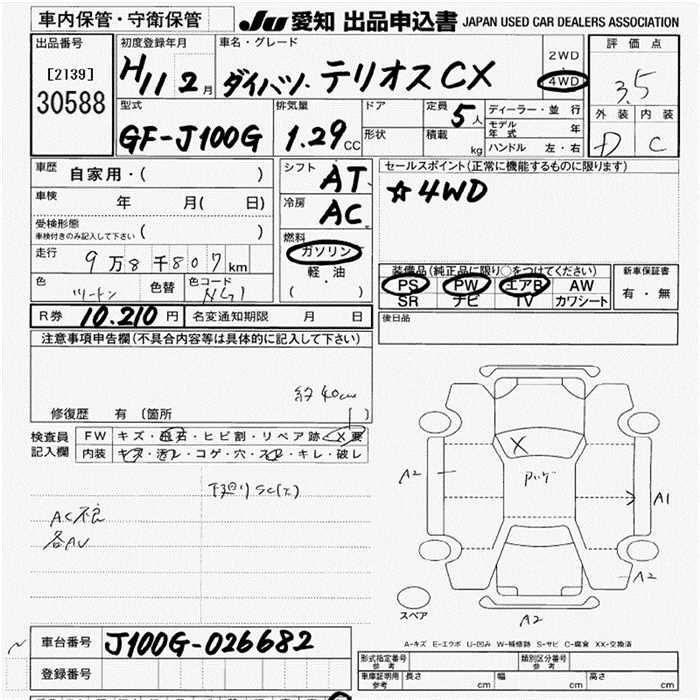 車内保管・守衛保管
JU 愛知 出品申込書 JAPAN USED CAR DEALERS ASSOCIATION
出品番号
[2139]
30588
初度登録年月
H11 2月
車名・グレード
ダイハツ・テリオスCX
2WD
・
4WD
評価点
3.5
外装 内装
D C
型式
GF-J100G
排気量
1.29 CC
ドア
形状
定員
5人
積載
kg
ディーラー・並行
モデル年式 年
ハンドル 左・右
車歴 自家用・( )
車検 年 月( 日)
受検形態
車検付きのみ記入して下さい ( )
走行 9万8千807km
色 ツートン 色替 色コード
シフト AT
冷房 AC
燃料
ガソリン
軽油
( )
セールスポイント(正常に機能するものに限ります)
☆4WD
装備品(純正品に限り○をつけてください)
PS PW エアB AW
SR ナビ TV カワシート
新車保証書
有・無
R券 10.210円 名変通知期限 月 日
後日品
注意事項申告欄(不具合内容等は具体的に記入して下さい)
約40cm
修復歴 有 (箇所 )
検査員記入欄
FW キズ・飛石・ヒビ割・リペア跡・X要
内装 キズ・汚レ・コゲ・穴・スレ・キレ・破レ
下廻りSC(大)
AC不良
各AU
A2
A1
A2
A2
スペア
A-キズ E-エクボ U-凹み W-補修跡 S-サビ C-腐食 XX-交換済
車台番号 J100G-026682
登録番号
形式指定番号
参考
類別区分番号
参考
車庫証明用
参考
長さ cm 幅 cm 高さ cm